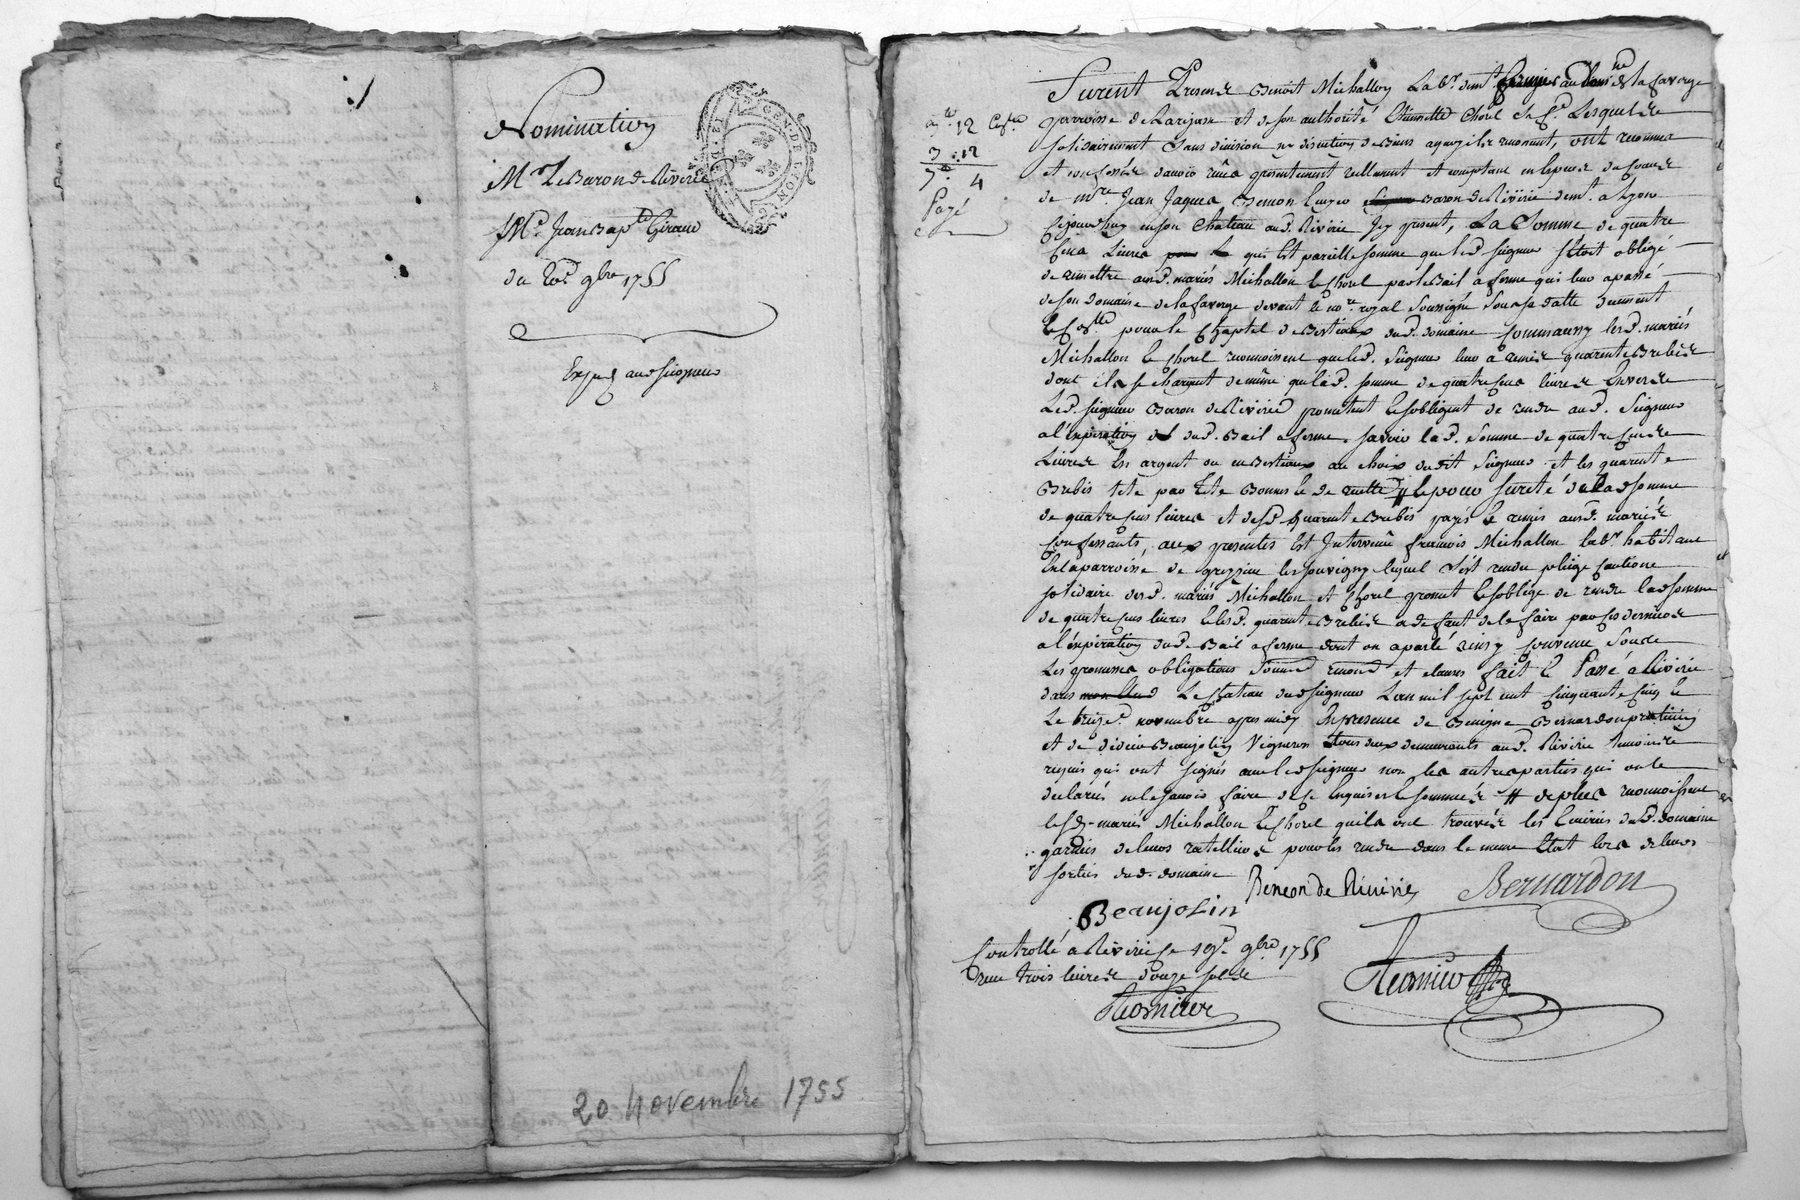 Nomination
Mr Le Baron de Riverie
Me Jean Bapte Giraud
du 20e 9bre 1755
Exped au d seigneur
20 Novembre 1755
GEN. DE LYON
12
3 : 12
7 : 4
Payé
Furent Presens Benoit Michallon Lab.r dem.t fermier au dom.ne de la favorge
parroisse de Larajasse et de son authorité Chorel sa f.e Lesquels
solidairement sans division ny discution de biens a quoy ils renoncent, ont reconnu
et confessé d'avoir reçu presentement reellement et comptant en especes de cours
de m.re Jean Jaques Beneon baron de Riverie dem.t a Lyon
ce jourdhuy en son Chateau aud. Riverie Icy present, La Somme de quatre
Cens Livres qui est pareille somme que led. seigneur s'etoit obligé
de remettre auxd. mariés Michallon et Chorel par le Bail a ferme qui leur a passé
de son domaine de la favorge devant le no.re royal soussigné sous sa datte
pour le Chaptel de Bestiaux dud. domaine comm'aussy lesd. mariés
Michallon et Chorel reconnoissent que led. Seigneur leur a remis quarente Brebis
dont ils se chargent de même que lad. somme de quatre cens livres Envers
Led. seigneur Baron de Riverie promettent et s'obligent de rendre aud. Seigneur
a l'expiration dud. Bail a ferme, savoir lad. Somme de quatre Cens
Livres En argent ou en Bestiaux au choix dudit Seigneur et les quarente
Brebis tete par tete Bonnes et de # et pour sureté de lad somme
de quatre cens livres et desd. quarente Brebis payés et remis auxd. mariés
Confessants, aux presentes Est Intervenu francois Michallon lab.r habitant
En la parroisse de grezieu le souvigny lequel s'est rendu pleige caution
solidaire desd. mariés Michallon et Chorel promet et s'oblige de rendre lad somme
de quatre cens livres et lesd. quarente Brebis a defaut de le faire par ces derniers
a l'expiration dud. Bail a ferme dont on a parlé ainsy convenu sous
Les promesses obligations renond et clauses fait et Passé a Riverie
dans Le chateau dud seigneur L'an mil sept cent cinquante cinq et
Le novembre apres midy En presence de Benigne Bernardon praticien
et de Beaujolin Vigneron tous deux demeurants aud. Riverie temoins
requis qui ont signés avec led seigneur non les autres parties qui ont
declarés ne le savoir faire de ce Enquises et sommées # de plus reconnoissent
lesd. mariés Michallon et Chorel qu'ils ont trouvé les Ecuries dud. domaine
garnies de leurs ratelliers pour les rendre dans le meme Etat lors de leurs
sorties dud. domaine Beneon de Riverie Bernardon
Beaujolin
Controllé a Riverie ce 19e 9bre 1755
reçu trois livres douze sols